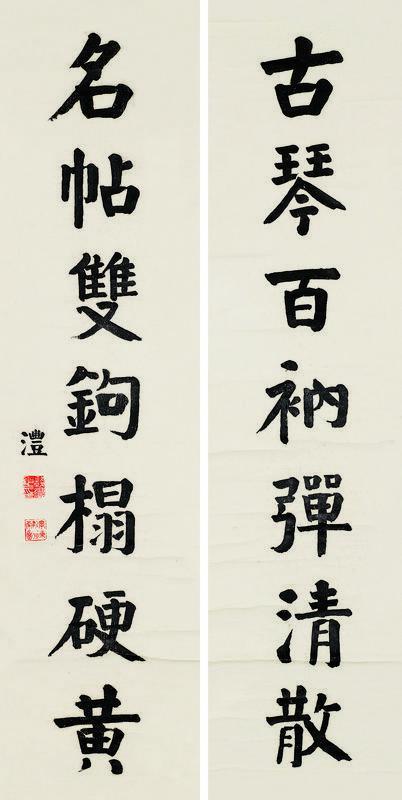 古琴百衲彈清散
名帖雙鉤榻硬黄
灃